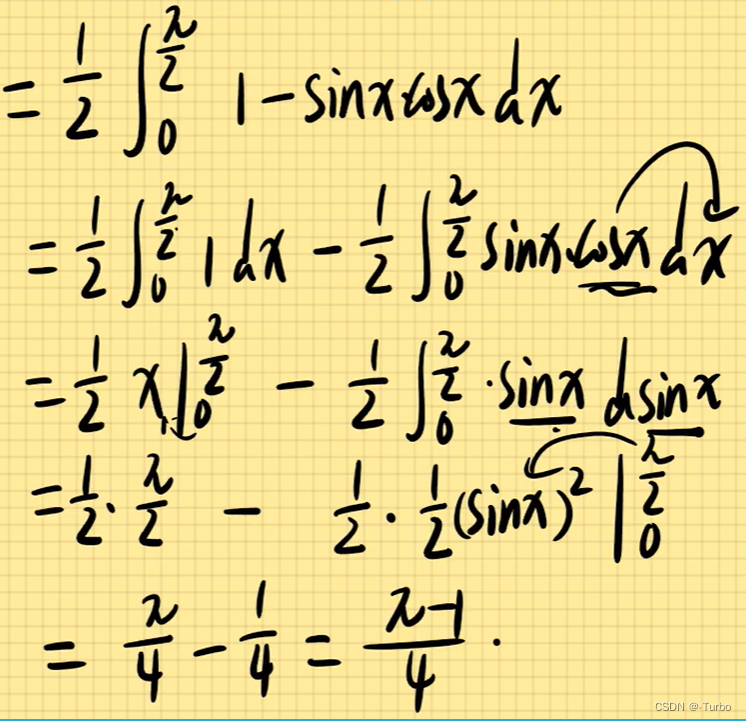 = 1/2 ∫_0^{π/2} 1 - sinx cosx dx
= 1/2 ∫_0^{π/2} 1 dx - 1/2 ∫_0^{π/2} sinx·cosx dx
= 1/2 x |_0^{π/2} - 1/2 ∫_0^{π/2} ·sinx dsinx
= 1/2 · π/2 - 1/2 · 1/2 (sinx)^2 |_0^{π/2}
= π/4 - 1/4 = (π-1)/4 .
CSDN @-Turbo